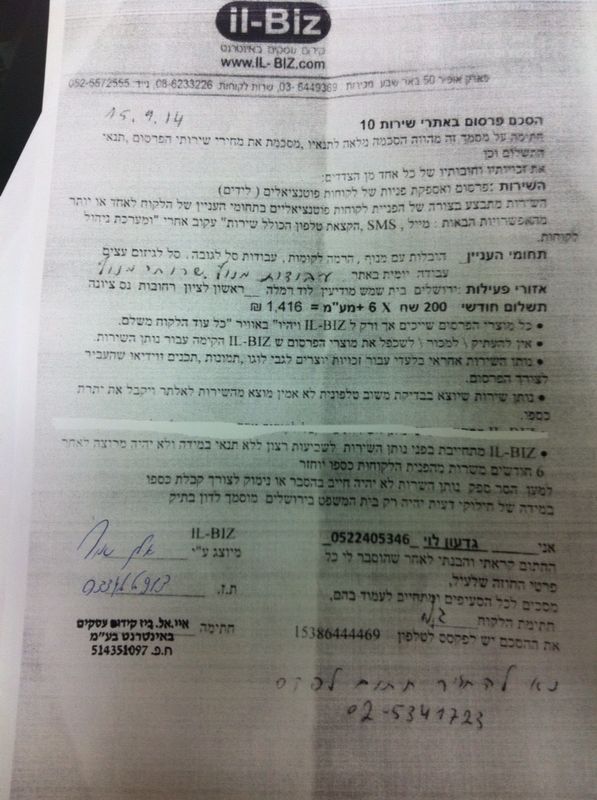 il-Biz
קידום עסקים באינטרנט
www.IL-BIZ.com
פארק אופיר 50 באר שבע מכירות 03-6449369, שרות לקוחות 08-6233226, נייד 052-5572555
15.9.14
הסכם פרסום באתרי שירות 10
חתימה על מסמך זה מהווה הסכמה מלאה לתנאיו, מסכמת את מחירי שירותי הפרסום, תנאי
התשלום וכן
את זכויותיו וחובותיו של כל אחד מן הצדדים:
השירות: פרסום ואספקת פניות של לקוחות פוטנציאלים (לידים)
השירות מתבצע בצורה של הפניית לקוחות פוטנציאליים בתחומי העניין של הלקוח לאחד או יותר
מהאפשרויות הבאות: מייל, SMS, הקצאת טלפון הכולל שירות "עקוב אחרי" ומערכת ניהול
לקוחות.
תחומי העניין_ הובלות עם מנוף, הרמה לקומות, עבודות סל לגובה, סל לגיזום עצים
עבודה יומית באתר עבודות מנוף, שרותי מנוף
אזורי פעילות: ירושלים בית שמש מודיעין לוד רמלה __ראשון לציון רחובות נס ציונה
תשלום חודשי 200 שח X 6 +מע"מ = 1,416 ₪
• כל מוצרי הפרסום שייכים אך ורק ל IL-BIZ ויהיו "באוויר" כל עוד הלקוח משלם.
• אין להעתיק \ למכור \ לשכפל את מוצרי הפרסום ש IL-BIZ הקימה עבור נותן השירות.
• נותן השירות אחראי בלעדי עבור זכויות יוצרים לגבי לוגו, תמונות, תכנים ווידיאו שהעביר
לצורך הפרסום.
• נותן שירות שיוצא בבדיקת משוב טלפונית לא אמין מוצא מהשירות לאלתר ויקבל את יתרת
כספו.
• IL-BIZ מתחייבת בפני נותן השירות לשביעות רצון ללא תנאי במידה ולא יהיה מרוצה לאחר
6 חודשים משרות מהפניית הלקוחות כספו יוחזר
למען הסר ספק נותן השרות לא יהיה חייב בהסבר או נימוק לצורך קבלת כספו
במידה של חילוקי דעות יהיה רק בית המשפט בירושלים מוסמך לדון בתיק
אני_____ גדעון לוי _0522405346_
החתום קראתי והבנתי לאחר שהוסבר לי כל
פרטי החוזה שלעיל,
מסכים לכל הסעיפים ומתחייב לעמוד בהם,
חתימת הלקוח
את ההסכם יש לפקסס לטלפון 15386444469
IL-BIZ
מיוצג ע"י
ת.ז.
חתימה
איי.אל. ביז קידום עסקים
באינטרנט בע"מ
ח.פ. 514351097
נא להחזיר חתום לפקס
02-5341723